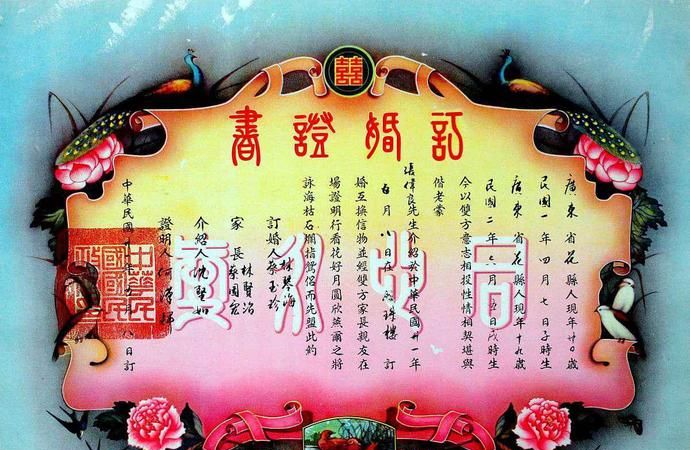 囍
訂婚證書
廣東省花縣人現年廿〇歲
民國一年四月七日子時生
廣東省花縣人現年十九歲
民國二年六月 日戌時生
今以雙方意志相投性情相契堪與
偕老蒙
張偉良先生介紹於中華民國廿一年
五月八日在 樓訂
婚互換信物並經雙方家長親友在
場證明行看花好月圓欣燕爾之將
詠海枯石爛指鴛侶而先盟此約
訂婚人 林琴海 蔡玉珍
家長 林賢治 蔡國宏
介紹人 沈
證明人 何
中華民國廿 年五月八日訂